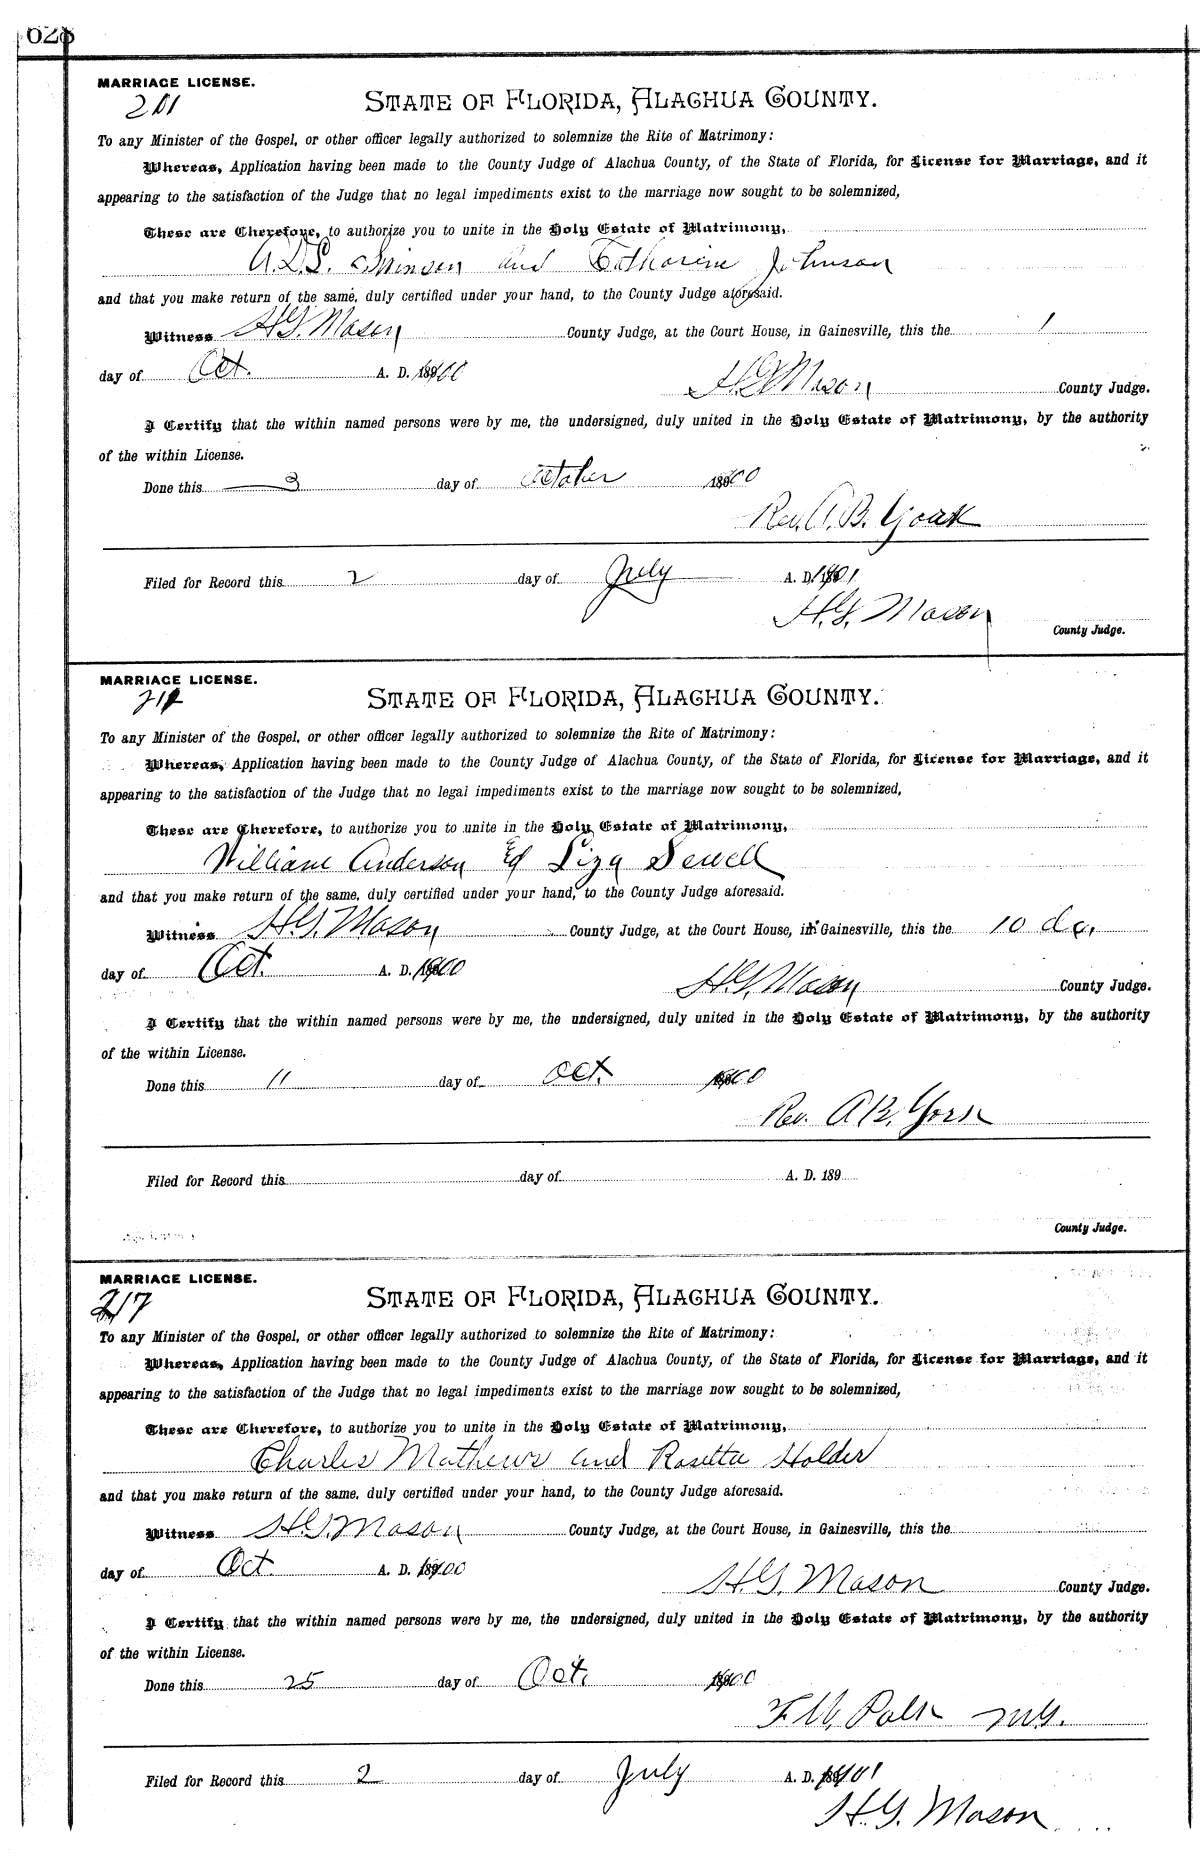 628
MARRIAGE LICENSE.
201
STATE OF FLORIDA, ALACHUA COUNTY.
To any Minister of the Gospel, or other officer legally authorized to solemnize the Rite of Matrimony:
Whereas, Application having been made to the County Judge of Alachua County, of the State of Florida, for License for Marriage, and it
appearing to the satisfaction of the Judge that no legal impediments exist to the marriage now sought to be solemnized,
These are Therefore, to authorize you to unite in the Holy Estate of Matrimony,
and Catharine Johnson
and that you make return of the same, duly certified under your hand, to the County Judge aforesaid.
Witness H.G. Mason County Judge, at the Court House, in Gainesville, this the 1
day of Oct. A. D. 1900
H.G. Mason County Judge.
I Certify that the within named persons were by me, the undersigned, duly united in the Holy Estate of Matrimony, by the authority
of the within License.
Done this 3 day of October 1900
Rev. A. B. York
Filed for Record this 2 day of July A. D. 1901
H.G. Mason
County Judge.
MARRIAGE LICENSE.
STATE OF FLORIDA, ALACHUA COUNTY.
To any Minister of the Gospel, or other officer legally authorized to solemnize the Rite of Matrimony:
Whereas, Application having been made to the County Judge of Alachua County, of the State of Florida, for License for Marriage, and it
appearing to the satisfaction of the Judge that no legal impediments exist to the marriage now sought to be solemnized,
These are Therefore, to authorize you to unite in the Holy Estate of Matrimony,
William Anderson & Liza Sewell
and that you make return of the same, duly certified under your hand, to the County Judge aforesaid.
Witness H.G. Mason County Judge, at the Court House, in Gainesville, this the 10
day of Oct. A. D. 1900
H.G. Mason County Judge.
I Certify that the within named persons were by me, the undersigned, duly united in the Holy Estate of Matrimony, by the authority
of the within License.
Done this 11 day of Oct. 1900
Rev. A B. York
Filed for Record this day of A. D. 189
County Judge.
MARRIAGE LICENSE.
217
STATE OF FLORIDA, ALACHUA COUNTY.
To any Minister of the Gospel, or other officer legally authorized to solemnize the Rite of Matrimony:
Whereas, Application having been made to the County Judge of Alachua County, of the State of Florida, for License for Marriage, and it
appearing to the satisfaction of the Judge that no legal impediments exist to the marriage now sought to be solemnized,
These are Therefore, to authorize you to unite in the Holy Estate of Matrimony,
Charles Mathews and Rosetta Holder
and that you make return of the same, duly certified under your hand, to the County Judge aforesaid.
Witness H.G. Mason County Judge, at the Court House, in Gainesville, this the
day of Oct A. D. 1900
H.G. Mason County Judge.
I Certify that the within named persons were by me, the undersigned, duly united in the Holy Estate of Matrimony, by the authority
of the within License.
Done this 25 day of Oct. 1900
F. W. Polk M.G.
Filed for Record this 2 day of July A. D. 1901
H.G. Mason